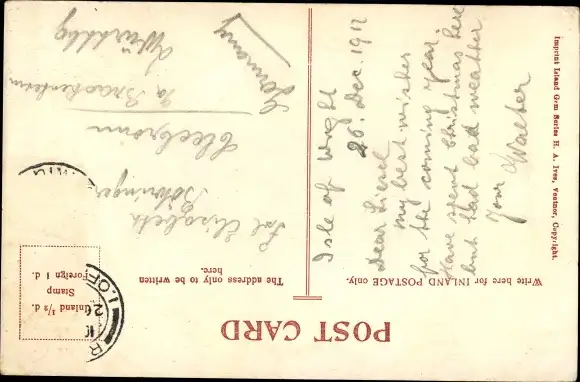 POST CARD
Write here for INLAND POSTAGE only.
The address only to be written
here.
Inland 1/2 d.
Stamp
Foreign 1 d.
Isle of Wight
26. Dec. 1912
Dear Liesel
my best wishes
for the coming year.
Have spent Christmas here
but had bad weather
Your Walter
Frl Elisabeth
Böhringer
Cleebronn
Brackenheim
Württbg
Germany
Imprint Island Gem Series H. A. Ives, Ventnor, Copyright.